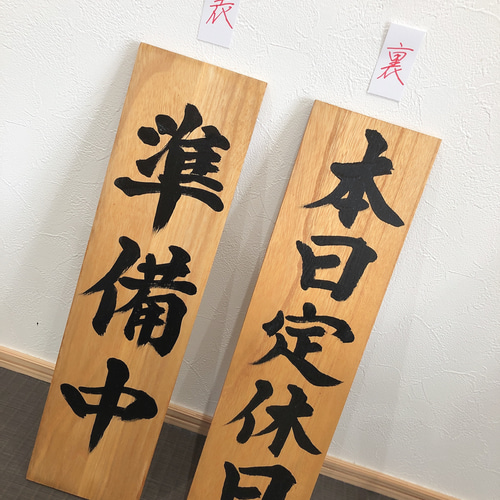 表
準備中
裏
本日定休日